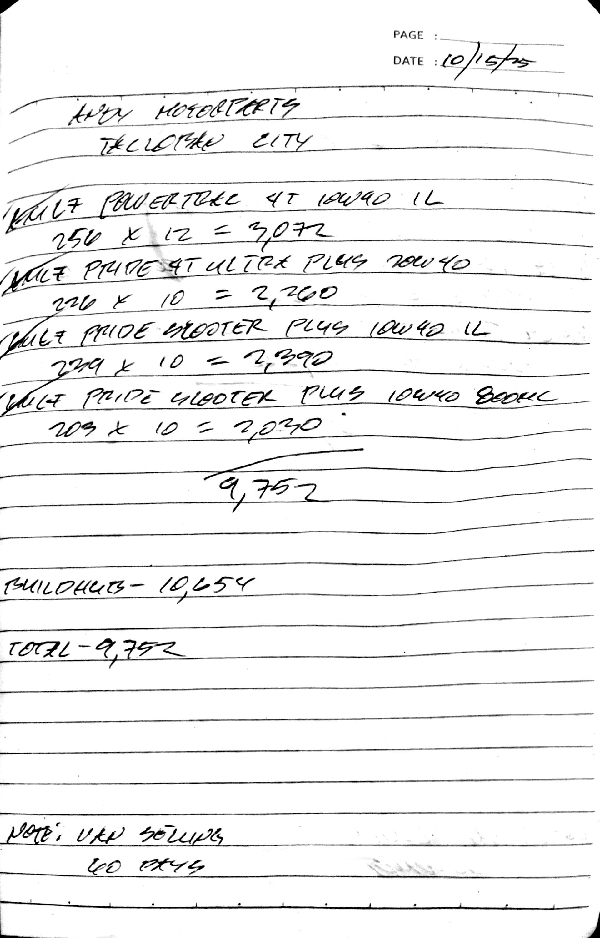 PAGE :
DATE : 10/15/25
ANDY MOTORPARTS
TACLOBAN CITY
POWERTRAC 4T 10W40 1L
256 X 12 = 3,072
PRIDE 4T ULTRA PLUS 20W40
226 X 10 = 2,260
PRIDE SCOOTER PLUS 10W40 1L
239 X 10 = 2,390
PRIDE SCOOTER PLUS 10W40 800ML
203 X 10 = 2,030
9,752
- 10,654
TOTAL - 9,752
NOTE: VAN SELLING
60 DAYS